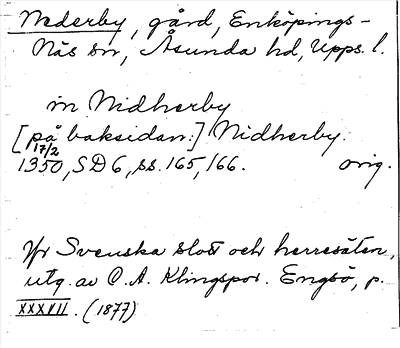 Nederby, gård, Enköpings-
Näs sn, Åsunda hd, Upps. l.
in Nidherby
[på baksidan:] Nidherby.
17/2
1350, SD 6, ss. 165, 166. orig.
Jfr Svenska slott och herresäten,
utg. av O. A. Klingspor. Engsö, p.
XXXVII. (1877)